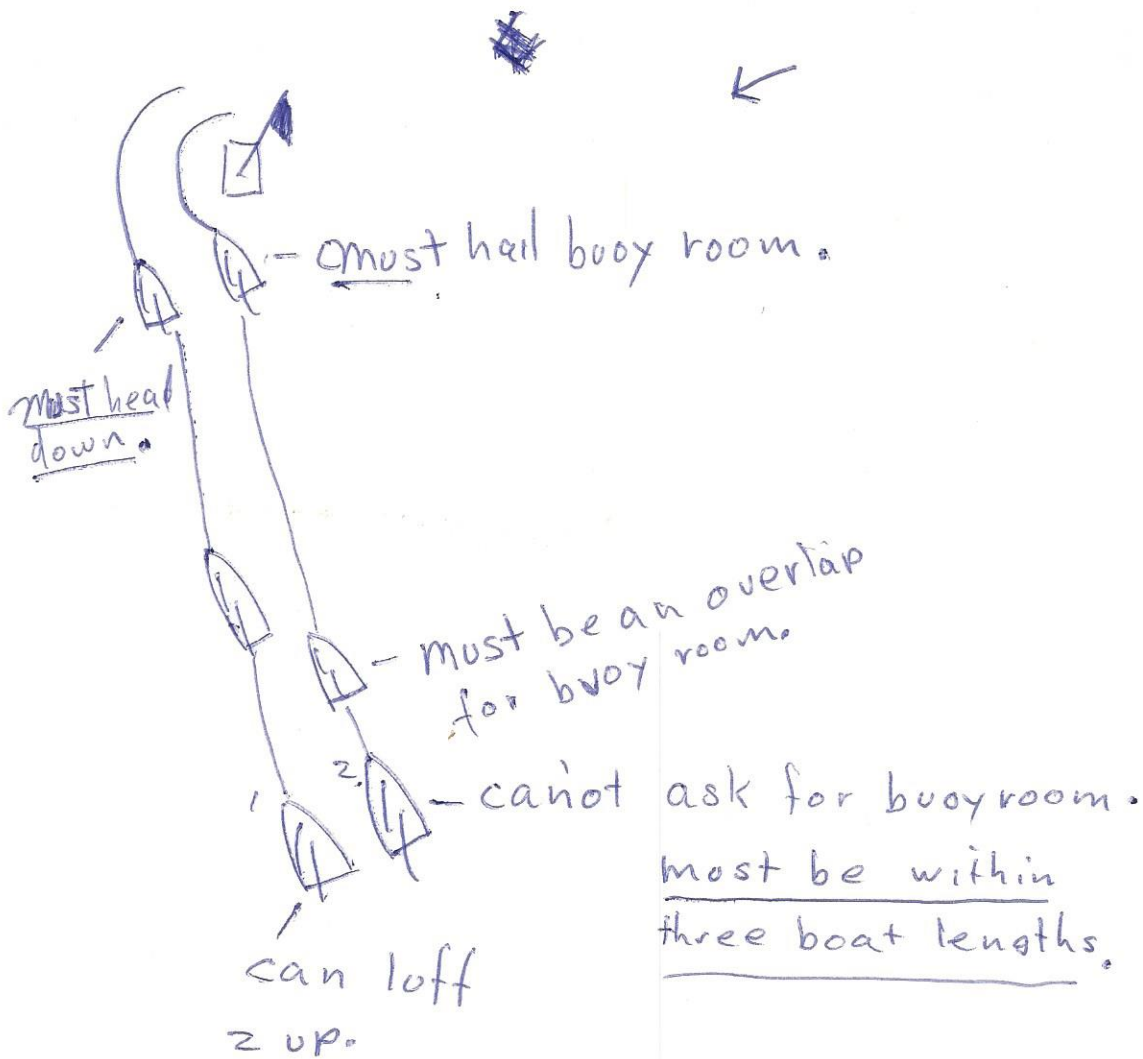 must hail buoy room.
must head
down.
must be an overlap
for buoy room.
2.
canot ask for buoyroom.
1
must be within
three boat lengths.
can loff
2 up.